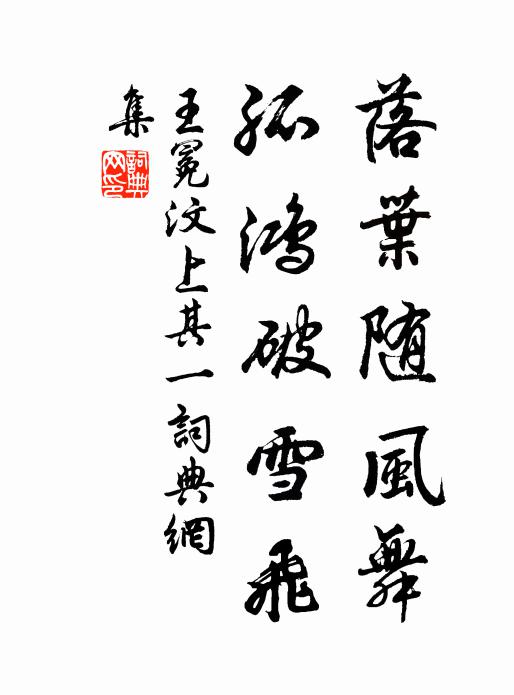 落葉随風舞
孤鴻破雪飛
王冕汶上其一詞典網
集
詞典
网印